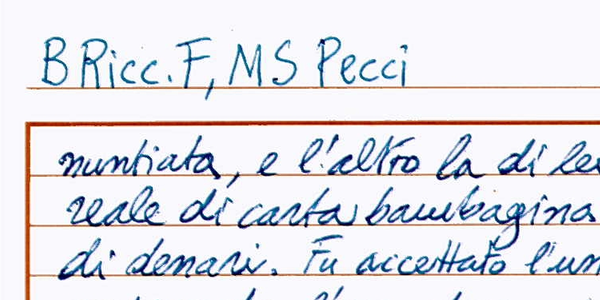 B Ricc. F, MS Pecci
nuntiata, e l'altro la di
reale di carta bambagina
di denari. Fu accettato l'un